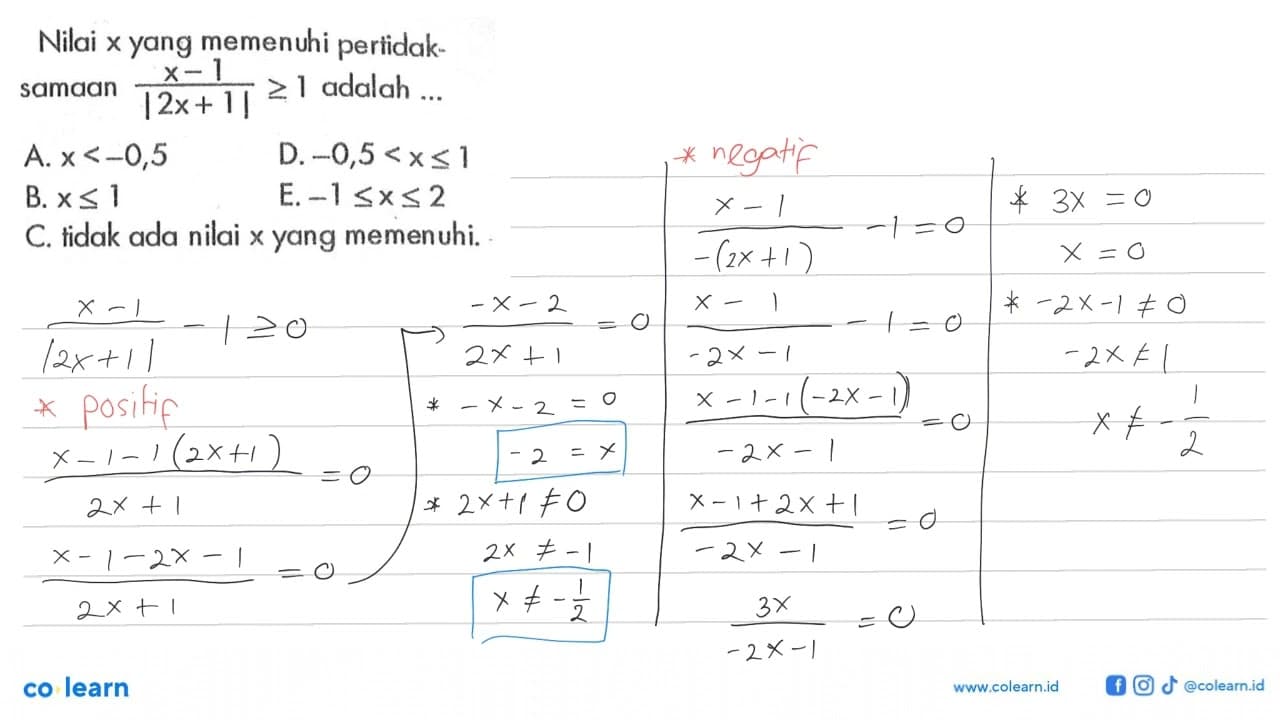 Nilai x yang memenuhi pertidak-
samaan (x-1)/|2x+1| ≥ 1 adalah ...
A. x < -0,5
D. -0,5 < x ≤ 1
B. x ≤ 1
E. -1 ≤ x ≤ 2
C. tidak ada nilai x yang memenuhi.
(x-1)/|2x+1| - 1 ≥ 0
* positif
(x-1-1(2x+1))/(2x+1) = 0
(x-1-2x-1)/(2x+1) = 0
→ (-x-2)/(2x+1) = 0
* -x-2 = 0
-2 = x
* 2x+1 ≠ 0
2x ≠ -1
x ≠ -1/2
* negatif
(x-1)/(-(2x+1)) - 1 = 0
(x-1)/(-2x-1) - 1 = 0
(x-1-1(-2x-1))/(-2x-1) = 0
(x-1+2x+1)/(-2x-1) = 0
3x/(-2x-1) = 0
* 3x = 0
x = 0
* -2x-1 ≠ 0
-2x ≠ 1
x ≠ -1/2
co learn
www.colearn.id
@colearn.id